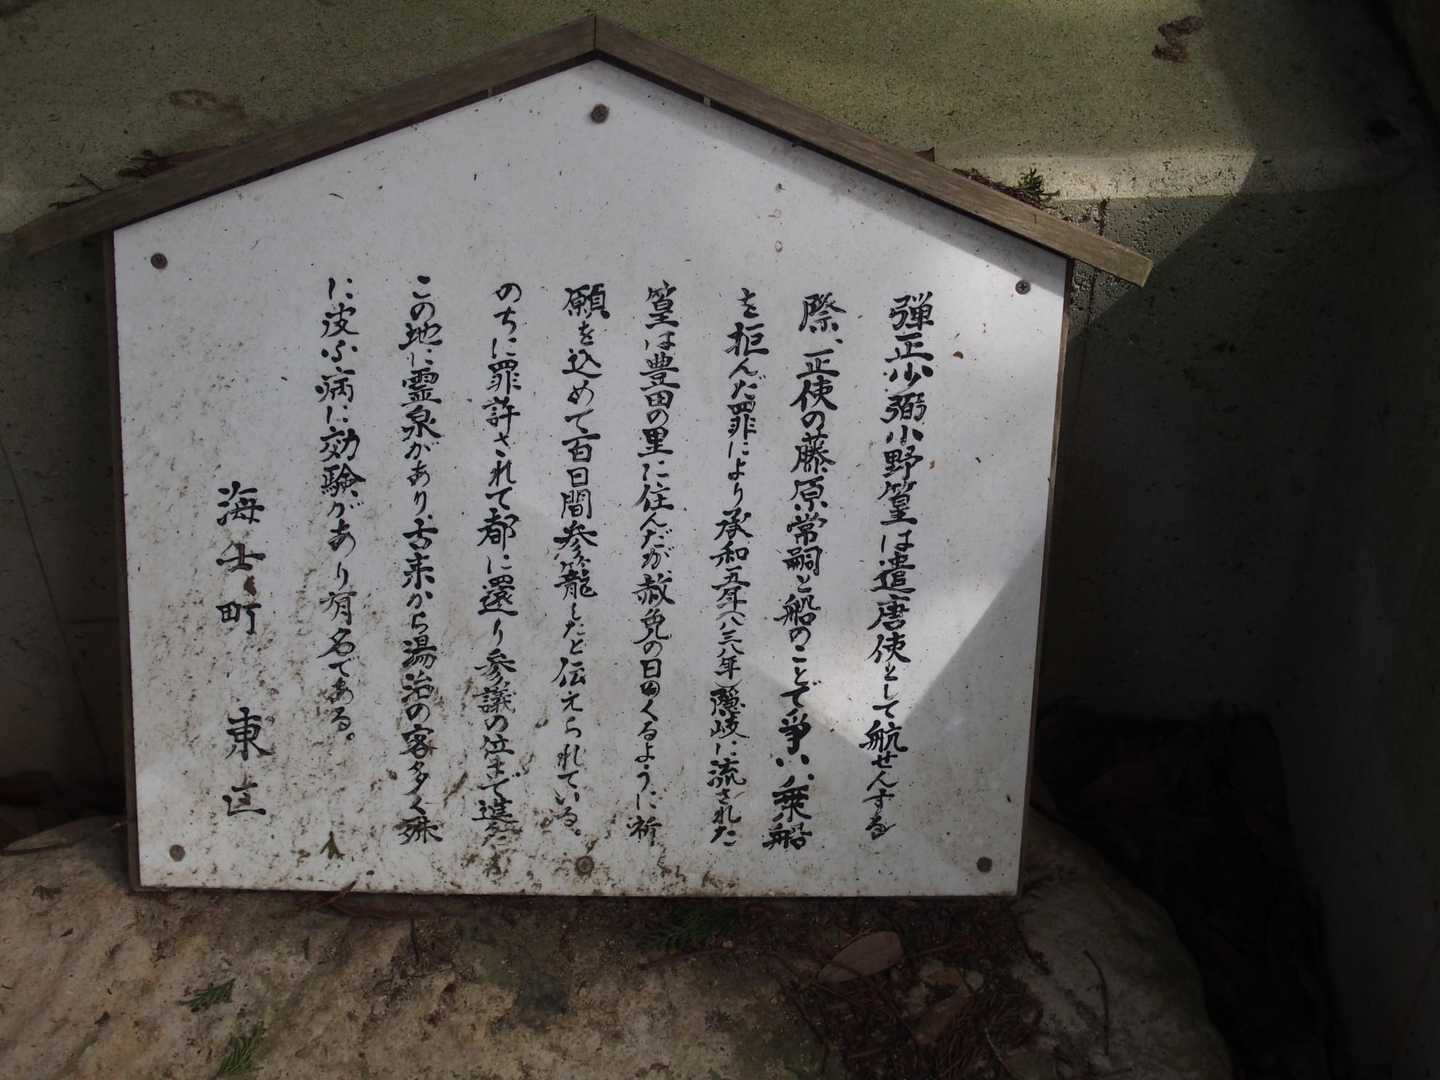 弾正少弼小野篁は遣唐使として航せんする
際、正使の藤原常嗣と船のことで争い、乗船
を拒んだ罪により承和五年(八三八年)隠岐に流された
篁は豊田の里に住んだが赦免の日のくるように祈
願を込めて百日間参籠したと伝えられている。
のちに罪許されて都に還り参議の位まで進んだ
この地に霊泉があり、古来から湯治の客多く殊
に皮ふ病に効験があり有名である。
海士町 東区